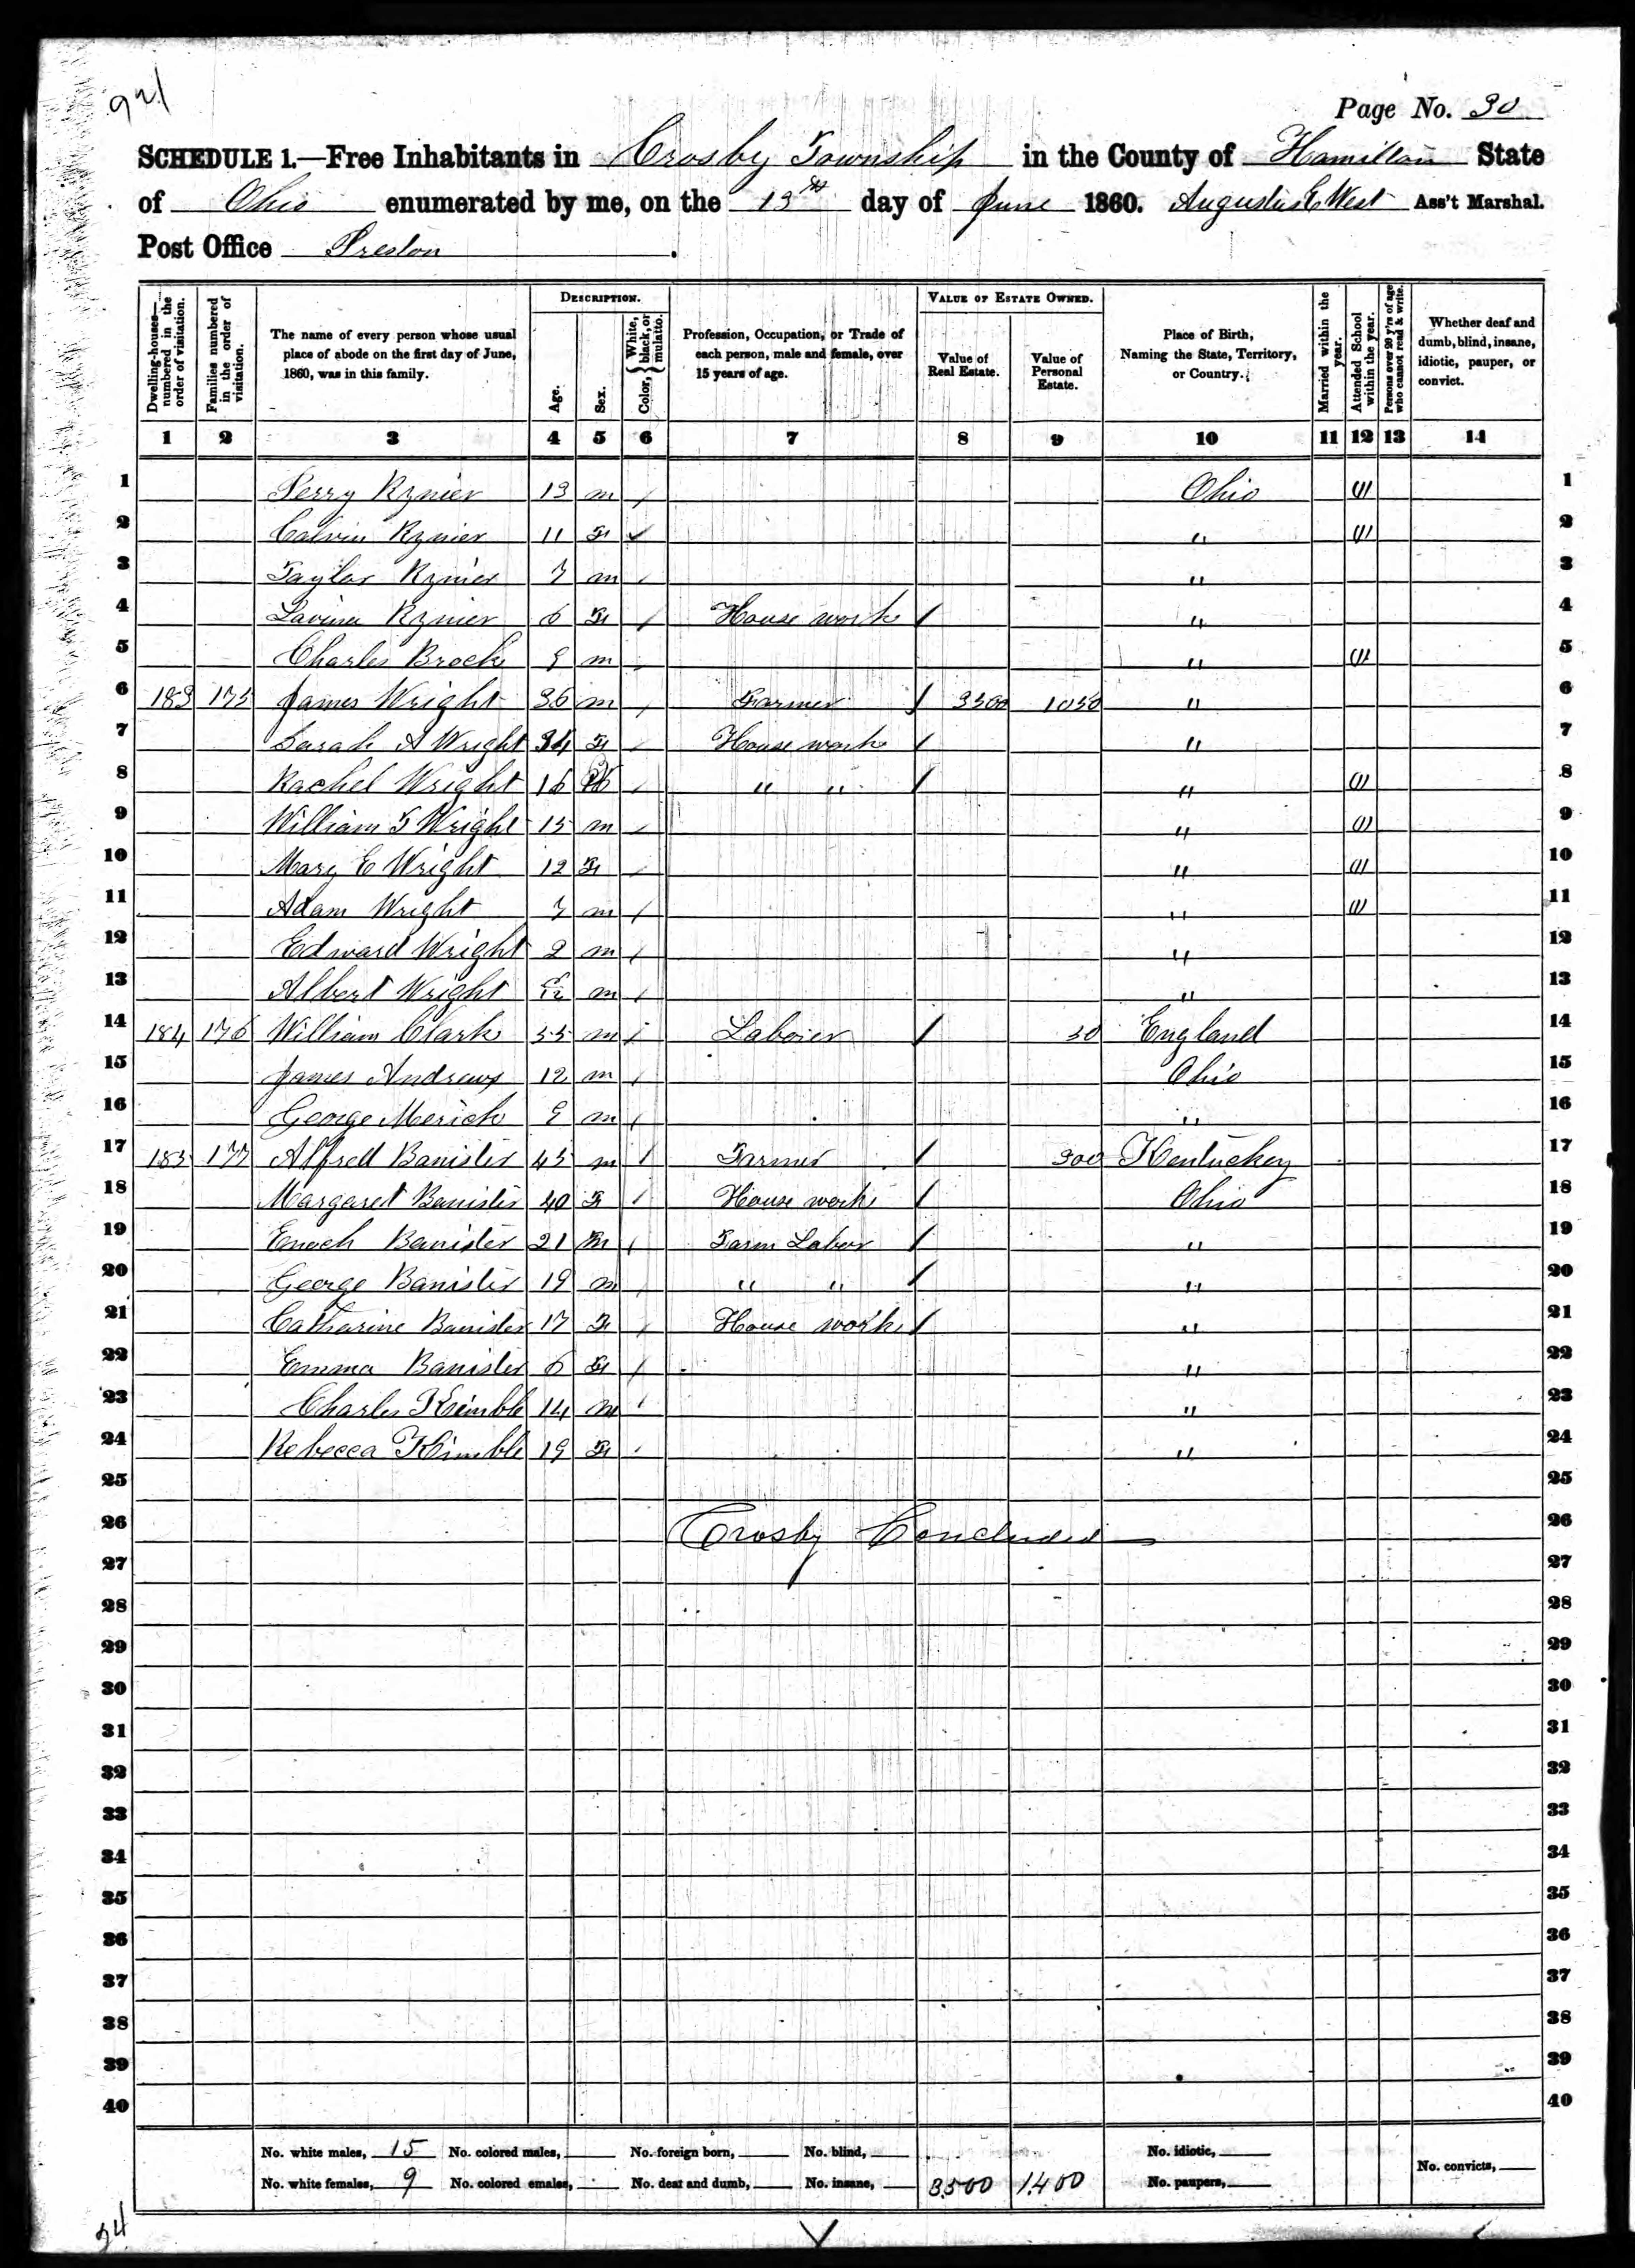 921
Page No. 30
SCHEDULE 1.—Free Inhabitants in Crosby Township in the County of Hamilton State
of Ohio enumerated by me, on the 13th day of June 1860. Augustus E West Ass't Marshal.
Post Office Preston.
Dwelling-houses—numbered in the order of visitation. Families numbered in the order of visitation. The name of every person whose usual place of abode on the first day of June, 1860, was in this family. DESCRIPTION. Age. Sex. Color, { White, black, or mulatto. Profession, Occupation, or Trade of each person, male and female, over 15 years of age. VALUE OF ESTATE OWNED. Value of Real Estate. Value of Personal Estate. Place of Birth, Naming the State, Territory, or Country. Married within the year. Attended School within the year. Persons over 20 y'rs of age who cannot read & write. Whether deaf and dumb, blind, insane, idiotic, pauper, or convict.
1 2 3 4 5 6 7 8 9 10 11 12 13 14
1 Perry Rynier 13 m / Ohio 1
2 Calvin Rynier 11 F " 2
3 Taylor Rynier 7 m " 3
4 Lavina Rynier 6 F / House work / " 4
5 Charles Brock 9 m " 5
6 183 175 James Wright 36 m / Farmer / 3500 1050 " 6
7 Sarah A Wright 34 F / House work / " 7
8 Rachel Wright 16 / " " / " 8
9 William T Wright 15 m / " 9
10 Mary E Wright 12 F / " 10
11 Adam Wright 7 m / " 11
12 Edward Wright 2 m / " 12
13 Albert Wright m / " 13
14 184 176 William Clark 55 m / Laborer / 50 England 14
15 James Andrews 12 m / Ohio 15
16 George Merick 9 m / " 16
17 185 177 Alfred Banister 45 m / Farmer / 300 Kentuckey 17
18 Margaret Banister 40 F / House work / Ohio 18
19 Enoch Banister 21 m / Farm Labor / " 19
20 George Banister 19 m / " " / " 20
21 Catharine Banister 17 F / House work / " 21
22 Emma Banister 6 F / " 22
23 Charles Kimble 14 m / " 23
24 Rebecca Kimble 19 F / " 24
25 25
26 Crosby Concluded 26
27 27
28 28
29 29
30 30
31 31
32 32
33 33
34 34
35 35
36 36
37 37
38 38
39 39
40 40
No. white males, 15 No. colored males, No. foreign born, No. blind, No. idiotic,
No. white females, 9 No. colored emales, No. deaf and dumb, No. insane, 3500 1400 No. paupers, No. convicts,
24